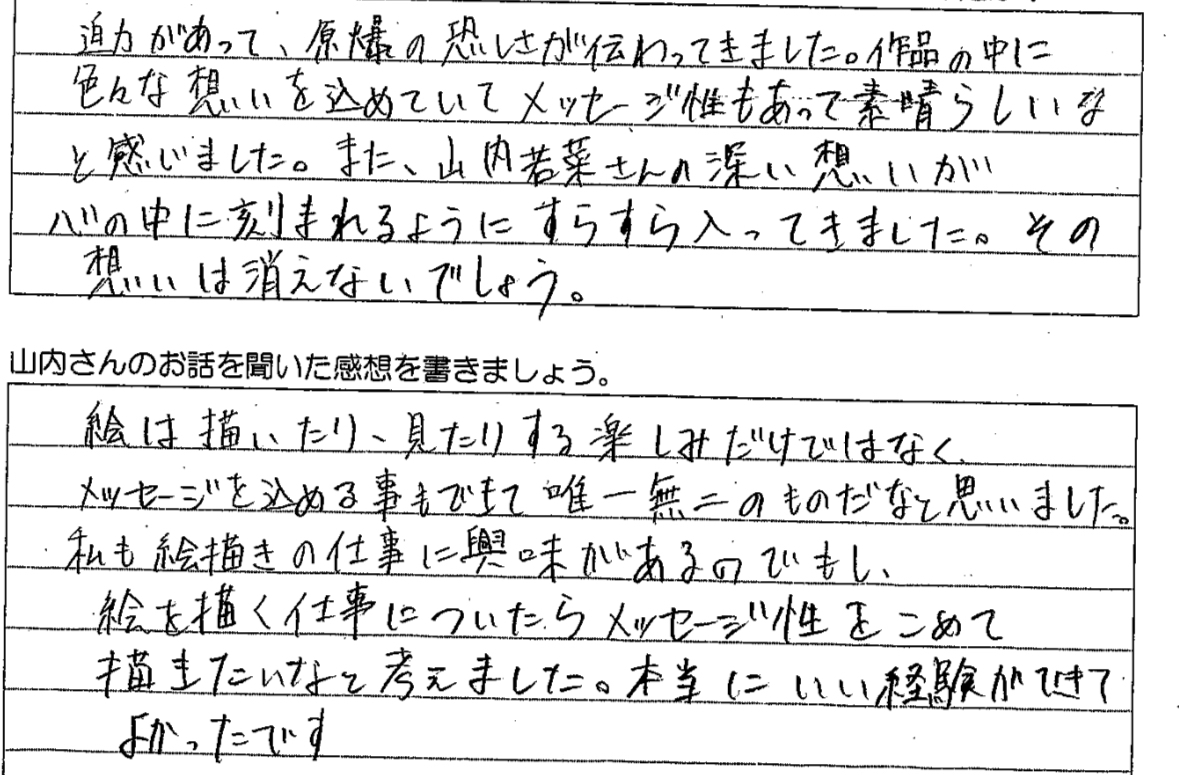 迫力があって、原爆の恐しさが伝わってきました。作品の中に
色んな想いを込めていてメッセージ性もあって素晴らしいな
と感じました。また、山内若菜さんの深い想いが
心の中に刻まれるようにすらすら入ってきました。その
想いは消えないでしょう。
山内さんのお話を聞いた感想を書きましょう。
絵は描いたり、見たりする楽しみだけではなく、
メッセージを込める事もできて唯一無二のものだなと思いました。
私も絵描きの仕事に興味があるのでもし、
絵を描く仕事についたらメッセージ性をこめて
描きたいなと考えました。本当にいい経験ができて
よかったです